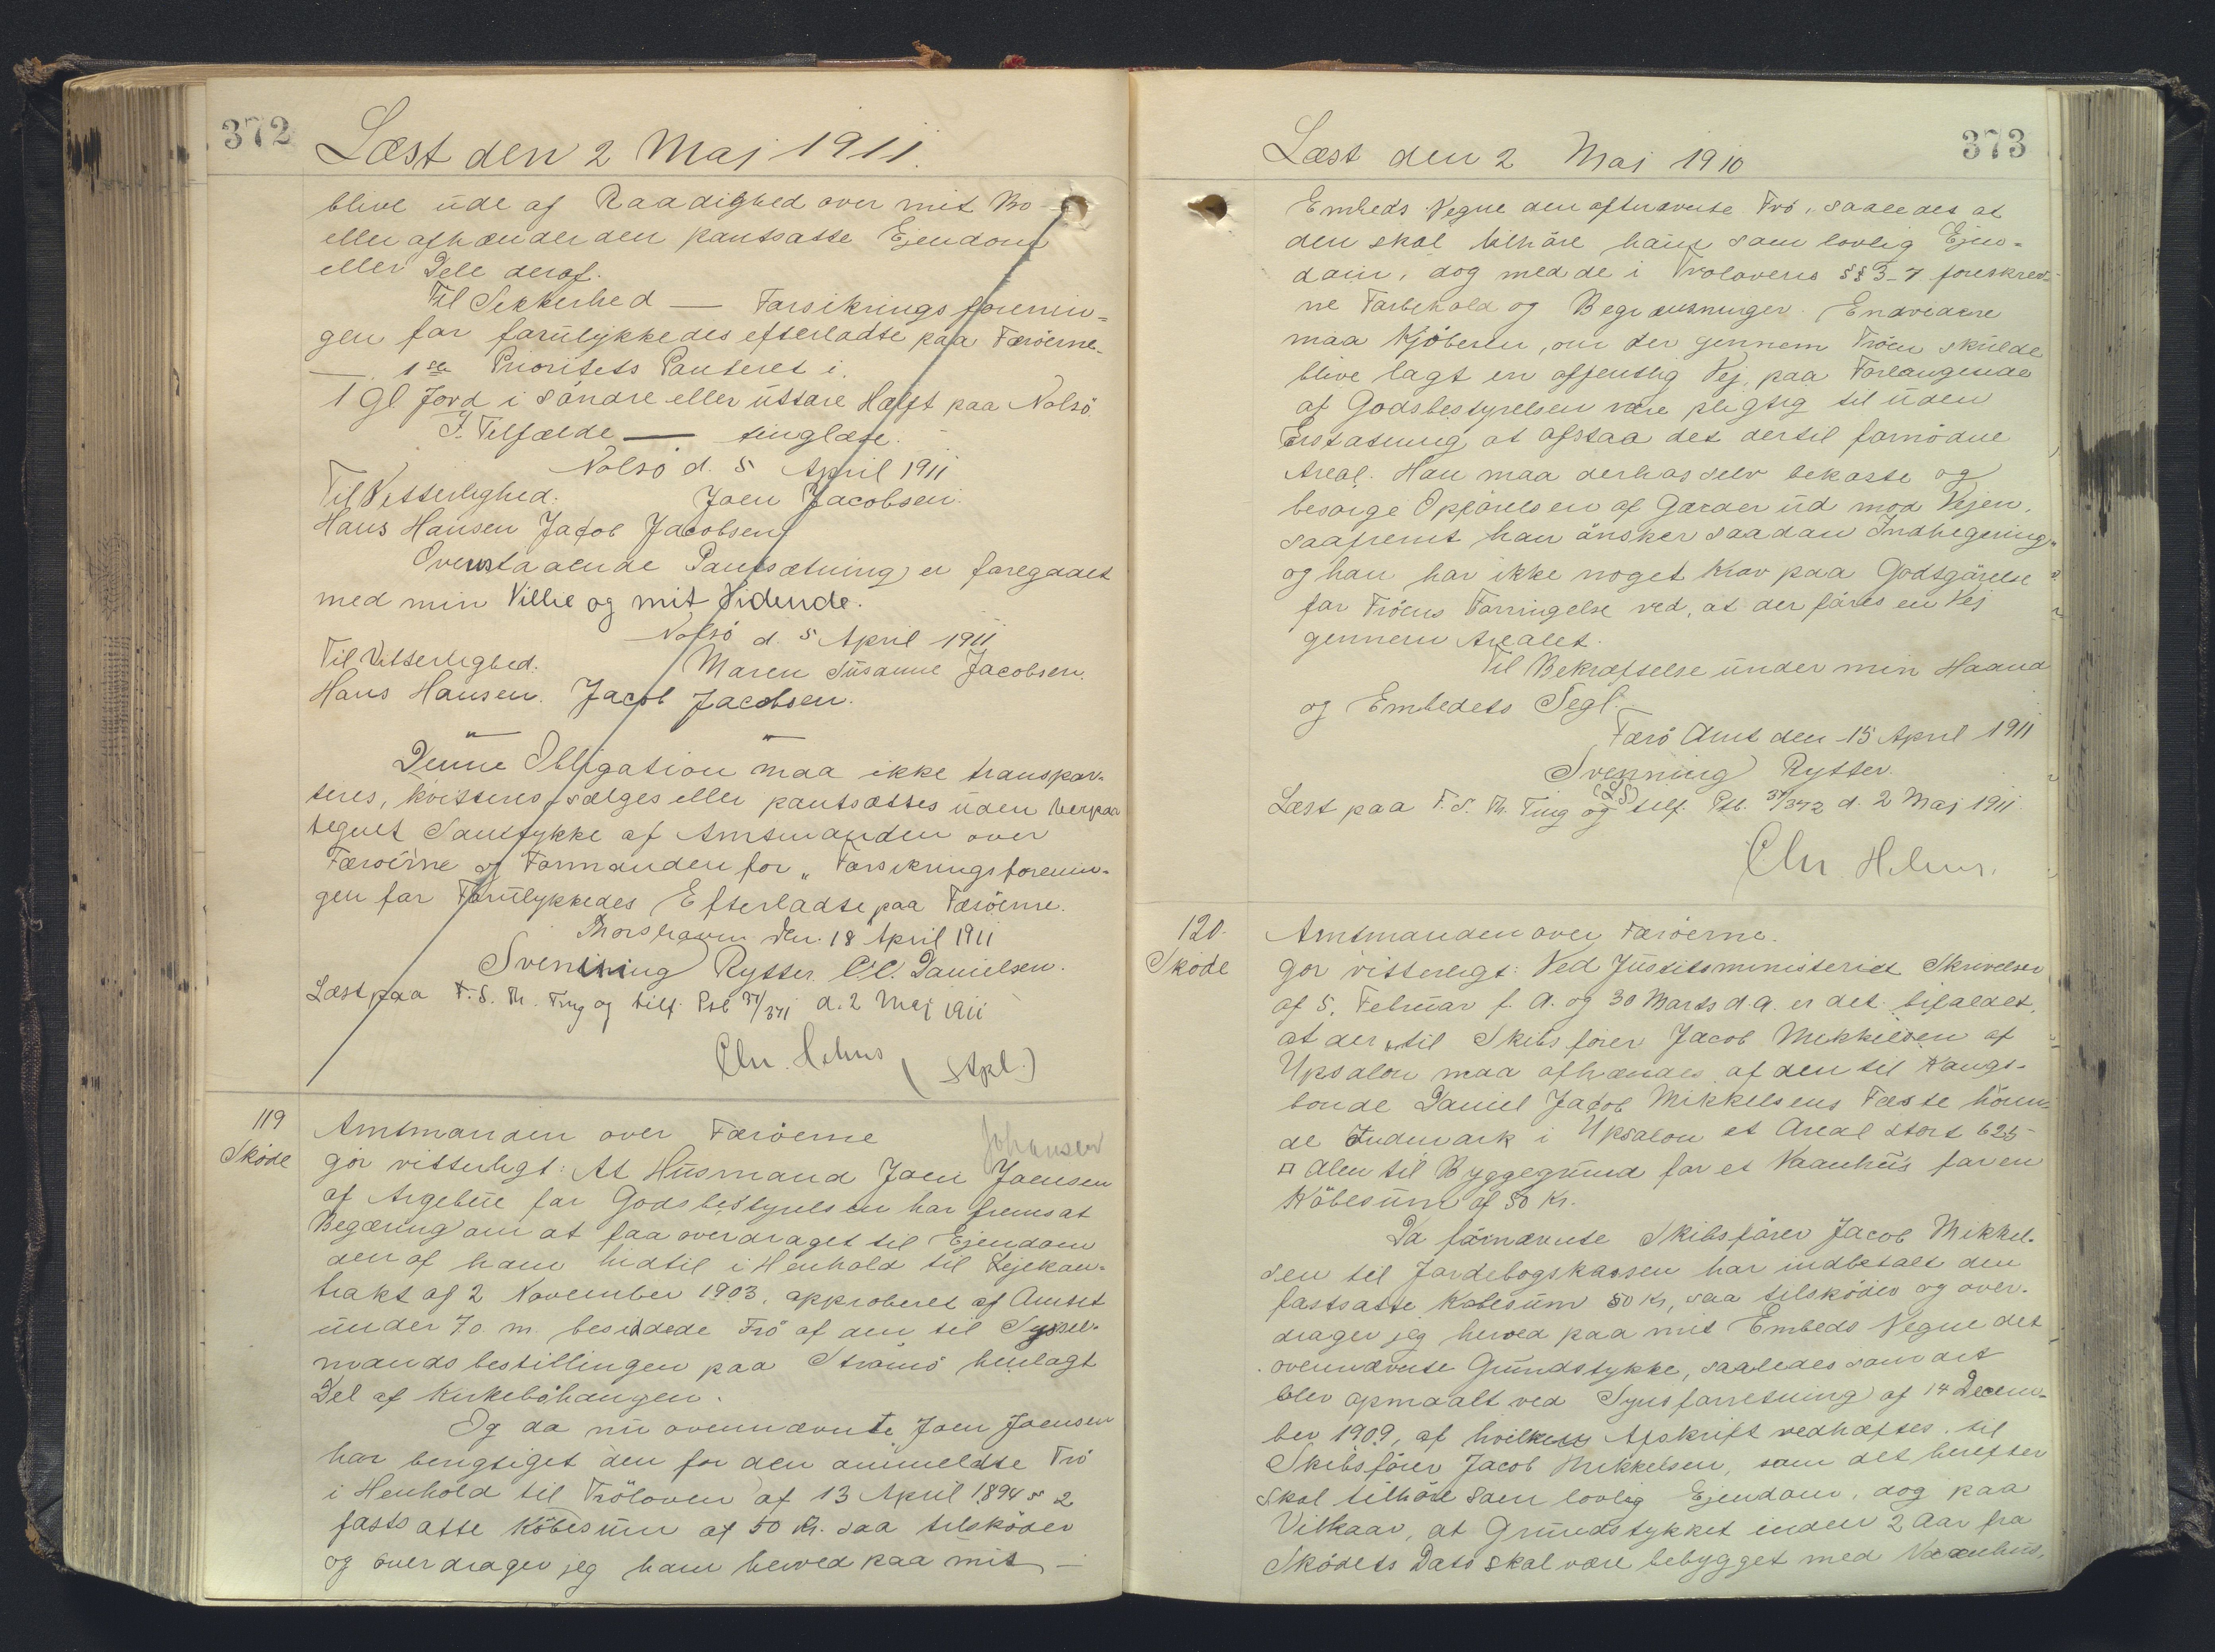 372
Læst den 2 Maj 1911.
blive ude af Raadighed over mit Bo
eller afhænder den pantsatte Ejendom
eller Dele deraf.
Til Sikkerhed — Forsikringsforenin=
gen for forulykkedes efterladte paa Færøerne
— 1ste Prioritets Panteret i
1 Gl. Jord i søndre eller uttare Halft paa Nolsø.
I Tilfælde — tinglæse.
Nolsø d. 5 April 1911
Til Vitterlighed: Joen Jacobsen.
Hans Hansen Jacob Jacobsen
Ovenstaaende Pantsætning er foregaaet
med min Villie og mit Vidende.
Nolsø d. 5 April 1911
Til Vitterlighed. Maren Susanne Jacobsen.
Hans Hansen. Jacob Jacobsen.
Denne Obligation maa ikke transpor-
teres, kvitteres, sælges eller pantsættes uden herpaa
tegnet Samtykke af Amtmanden over
Færøerne og Formanden for „Forsikringsforenin-
gen for Forulykkedes Efterladte paa Færøerne.
Thorshavn den 18 April 1911
Svenning Rytter. C.C. Danielsen.
Læst paa F. S. Th. Ting og tilf. Ptb 37/371 d. 2 Maj 1911
Chr. Helms
119
Skøde
Johansen
Amtmanden over Færøerne
gør vitterligt: At Husmand Joen Joensen
af Argebue for Godsbestyrelsen har fremsat
Begæring om at faa overdraget til Ejendom
den af ham hidtil i Henhold til Lejekon-
trakt af 2 November 1903, approberet af Amtet
under 7 s. m. besiddede Trø af den til Syssel-
mandsbestillingen paa Strømø henlagt
Del af Kirkebøhaugen.
Og da nu ovennævnte Joen Joensen
har berigtiget den for den anmeldte Trø
i Henhold til Trøloven af 13 April 1894 § 2
fastsatte Købesum af 50 Kr. saa tilskøder
og overdrager jeg ham herved paa mit —
Læst den 2 Maj 1910
373
Embeds Vegne den oftnævnte Trø, saaledes at
den skal tilhøre ham som lovlig Ejen=
dom, dog med de i Trøloverens §§ 3-7 foreskrev-
ne Forbehold og Begrænsninger. Endvidere
maa Kjøberen, om der gennem Trøen skulde
blive lagt en offentlig Vej, paa Forlangende
af Godsbestyrelsen være pligtig til uden
Erstatning at afstaa det dertil fornødne
Areal. Han maa derhos selv bekoste og
besørge Opførelsen af Gærder ud mod Vejen,
saafremt han ønsker saadan Indhegning,
og han har ikke noget Krav paa Godtgørelse
for Trøens Forringelse ved, at der føres en Vej
gennem Arealet.
Til Bekræftelse under min Haand
og Embedets Segl.
Færø Amt den 15 April 1911
Svenning Rytter.
(L.S)
Læst paa F. S. Th. Ting og tilf. Ptb. 37/372 d. 2 Maj 1911
Chr. Helms.
120.
Skøde
Amtmanden over Færøerne.
gør vitterligt: Ved Justitsministeriet Skrivelser
af 5. Februar f. A. og 30 Marts d. a. er det bifaldet,
at der til Skibsfører Jacob Mikkelsen af
Upsalon maa afhændes af den til Kongs-
bonde Daniel Jacob Mikkelsens Fæste høren-
de Indmark i Upsalon et Areal stort 625
□ Alen til Byggegrund for et Vaanhus for en
Købesum af 50 Kr.
Da fornævnte Skibsfører Jacob Mikkel-
sen til Jordebogskassen har indbetalt den
fastsatte Købesum 50 Kr, saa tilskøder og over-
drager jeg herved paa mit Embeds Vegne det
ovennævnte Grundstykke, saaledes som det
blev opmaalt ved Synsforretning af 14 Decem-
ber 1909, af hvilken Afskrift vedhæftes, til
Skibsfører Jacob Mikkelsen, som det herefter
skal tilhøre som lovlig Ejendom, dog paa
Vilkaar, at Grundstykket inden 2 Aar fra
Skødets Dato skal være bebygget med Vaanhus,